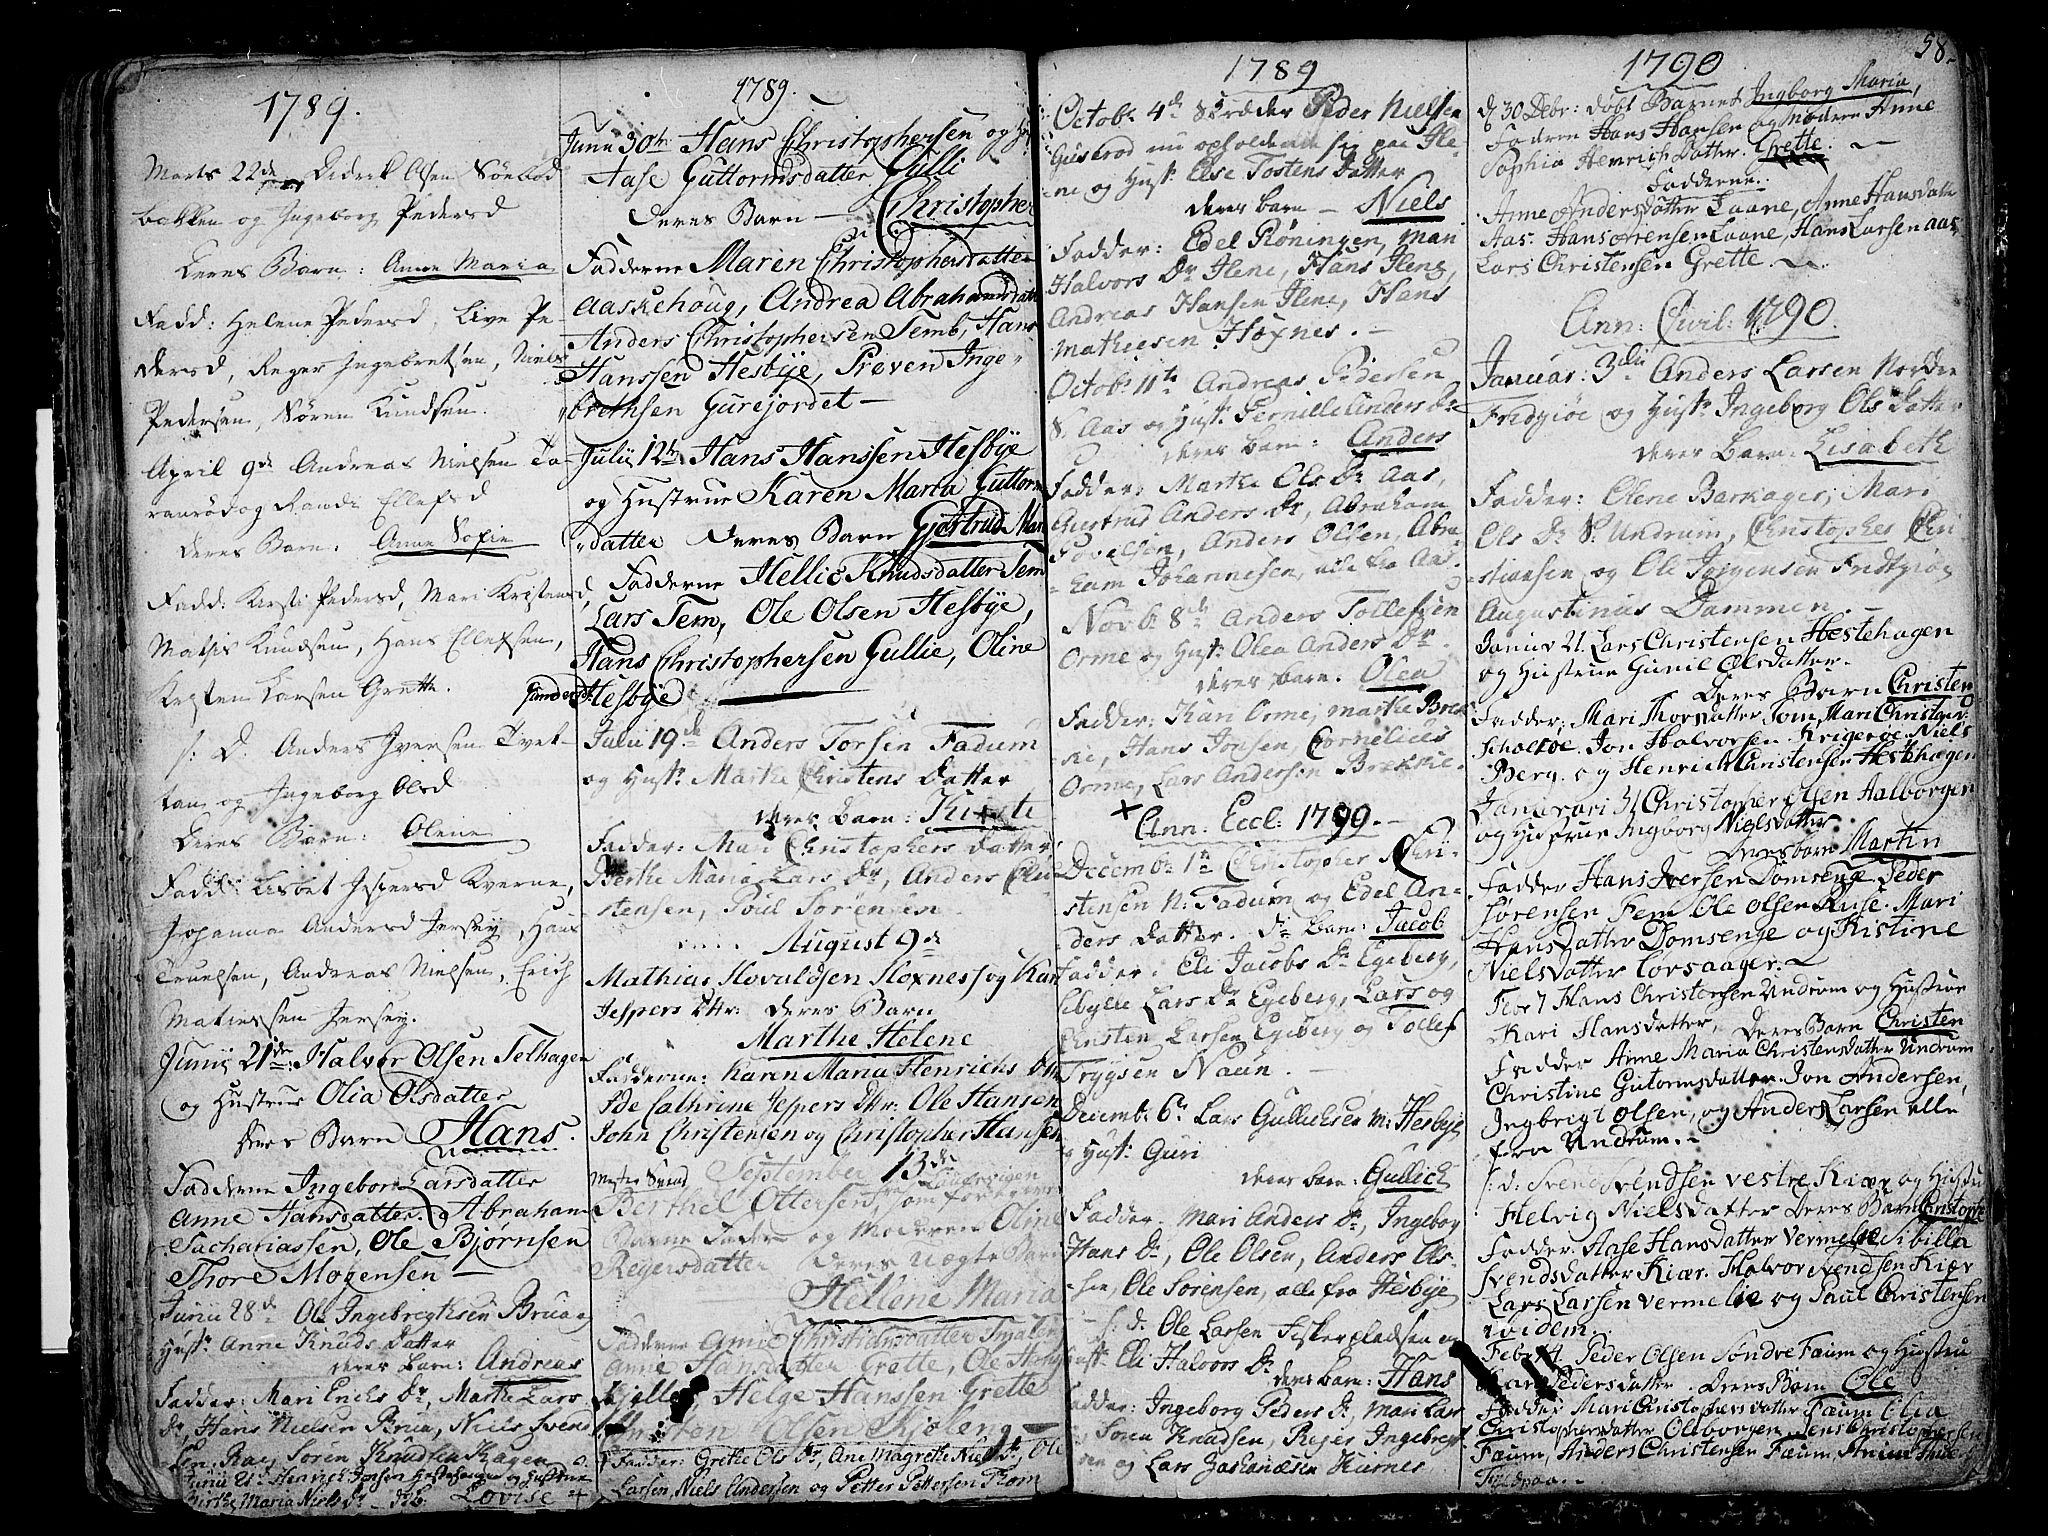 1789.
Marts 22de Didrik Olsen Sönbød
bakken og Ingeborg Pedersd
deres Barn: Anne Maria
Fadd: Helene Pedersd, Live Pe
dersd, Reger Ingebretsen, Niels
Pedersen, Sören Knudsen.
April 9de Andreas Nielsen Ta
ranrød og Randi Ellefsd
deres Barn: Anne Sofie
Fadd: Kirsti Pedersd, Mari Kristensd,
Mathis Knudsen, Hans Ellefsen,
Kristen Larsen Grette.
s: D. Anders Iversen Tvet-
tan og Ingeborg Olsd
deres Barn: Olene
Fadd: Lisbet Jespersd Kverne,
Johanna Andersd Jersey, Hans
Truelsen, Andreas Nielsen, Erich
Matiessen Jersey.
Junii 21de: Halvor Olsen Selhagen
og Hustrue Olia Olsdatter
deres Barn Hans.
Fadderne Ingebor Larsdatter
Anne Hansdatter. og Abraham
Sachariassen, Ole Bjørnsen
Thore Mogensen —
Junii 28de Ole Ingebregtsen Brua og
Hust: Anne Knuds datter
deres barn: Andreas
Fadder: Mari Enchs Dr, Marthe Lars
Dr, Hans Nielsen Brua, Niels Svend
sen, Rae, Soren Knudsen Hagen
Junii 21 Henrich Jonsen Hestehagen og Hustrue
Birthe Maria Niels Dr — d: b. Lovise +
1789.
Junii 30te Hans Christophersen og H
Aase Guttormsdatter Gulli
deres Barn — Christopher
Fadderne Maren Christophersdatter
Aaskehoug, Andrea Abrahamsdatt
Anders Christophersen Temb, Hans
Hanssen Hesbye, Preven Inge
brethsen Gurejordet —
Julii 12te Hans Hanssen Hesbye
og Hustrue Karen Maria Guttorm
datter deres Barn Gjertrud Mar
Fadderne Hellie Knudsdatter Tem
Lars Tem, Ole Olsen Hesbye,
Hans Christophersen Gullie, Oline
Gundersd: Hesbye
Julii 19de Anders Torsen Fadum
og Hust: Marthe Christens datter
deres Barn: Kirste
Fadder: Mari Christophers datter
Berthe Maria Lars Dr, Anders Chri-
stensen, Poul Sörensen
August 9de
Mathias Hovaldsen Hoxness og Kari
Jespers dtr: deres Barn
Marthe Helene
Fadderne: Karen Maria Henrichs dtr
Ide Cathrine Jespers dtr: Ole Hansen
John Christensen og Christopher Hansen
September 13de
Berthel Ottersen, som
Barne Fader og Moderen Oline
Reyersdatter deres uægte Barn
Hellene Maria
Fadderne Anne Christiansdatter
Anne Hansdatter Grette, Ole
Helge Hanssen Grette
Olsen Kjølerg —
Fadder: Grethe Ols Dr, Ane Magrethe Niels Dr, Ole
Larsen, Niels Andersen og Petter Pettersen Thom
1789
Octob: 4de Skrædder Peder Nielsen
Gusrod nu opholdende sig paa Ile-
ne og Hust: Else Tostens datter
deres barn — Niels
Fadder: Edel Röningen, Mari
Halvors Dr Ilene, Hans Ilene,
Andreas Hansen Ilene, Hans
Mathiesen Hoxnes. —
Octob: 11te Andreas Pedersen
S. Aas og Hust: Pernille Anders Dr
deres barn: Anders
Fadder: Marthe Ols Dr Aas,
Giertrud Anders Dr, Abraham
Povelsen, Anders Olsen, Abra-
ham Johannesen, alle fra Aas.
Novb: 8de Anders Tollefsen
Orme og Hust: Olea Anders Dr.
deres barn. Olea
Fadder: Kari Orme, Marthe Brek
ke, Hans Jonsen, Cornelius
Orme, Lars Andersen Brekke.
+ Ann: Eccl: 1790. —
Decemb: 1te Christopher Chri-
stensen N: Fadum og Edel An-
ders datter. d: barn: Jacob
Fadder: Eli Jacobs Dr Egeberg,
Sibylle Lars Dr Egeberg, Lars og
Christen Larsen Egeberg og Tollef
Trygsen Naun. —
Decemb: 6te Lars Gullichsen M: Hesbye
og Hust: Guri
deres barn: Gullich
Fadder: Mari Anders Dr, Ingebor
Hans Dr, Ole Olsen, Anders Ol-
sen, Ole Sörensen, alle fra Hesbye
s: d: Ole Larsen Fiskerpladsen og
Hust: Eli Halvors Dr deres barn: Hans
Fadder: Ingeborg Peders Dr, Mari Lars
Dr Soren Knudsen, Rejer Ingebregt
sen og Lars Zachariasen Kurnes
1790
58.
d: 30 Debr: döbt Barnet Ingborg Maria,
Fadren Hans Hansen og Modren Anne
Sophia Henrich datter. Grette. —
Fadderne.
Anne Andersdatter Laane, Anne Hansdatter
Aas. Hans Sörensen Laane, Hans Larsen Aas,
Lars Christensen Grette. —
Ann: Civil: 1790.
Januar: 3die Anders Larsen Nordre
Fredgiöe og Hust: Ingeborg Ols datter
deres barn: Lisabeth
Fadder: Olene Barkager, Mari
Ols Dr Sr Undrum, Christopher Chri
stiansen og Ole Jörgensen Fredgiöe
Augustinus Dammen. —
Januar 21. Lars Christensen Hestehagen
og Hustrue Gunil Olsdatter.
Deres Barn Christen
Fadder: Mari Thorsdatter Tom, Mari Christofer:
Scholtöe. Jon Halvorsen Krigeroe. Niels
Berg. og Henrich Christensen Hestehagen
Januari 31 Christopher Olsen Aalborgen
og Hustrue Ingborg Nielsdatter
Deres barn Martin
Fadder Hans Iversen Domsenge. Peder
Sörensen Fem Ole Olsen Ruse. Mari
Hansdatter Domsenge og Kistine
Nielsdatter Corsaager. —
Febr 7 Hans Christensen Undrum og Hustrue
Kari Hansdatter, Deres Barn Christen
Fadder Anne Maria Christensdatter Undrum
Christine Gutormsdatter. Jon Andersen,
Ingbrigt Olsen, og Anders Larsen alle
fra Undrum. —
s: d: Svend Svendsen vestre Kiær og Hustru
Helvig Nielsdatter Deres Barn Christopher
Fadder: Aase Hansdatter Vermelie Sibilla
Svendsdatter Kiær. Halvor Svendsen Kiær
Lars Larsen Vermelie og Paul Christensen
ibidem.
Febr 14. Peder Olsen Söndre Faum og Hustru
Kari Pedersdatter. Deres Barn Ole
Fadder Mari Christophersdatter Faum Olia
Christophersdatter Olborgen. Jens Christophersen
Faum, Anders Christensen Faum,